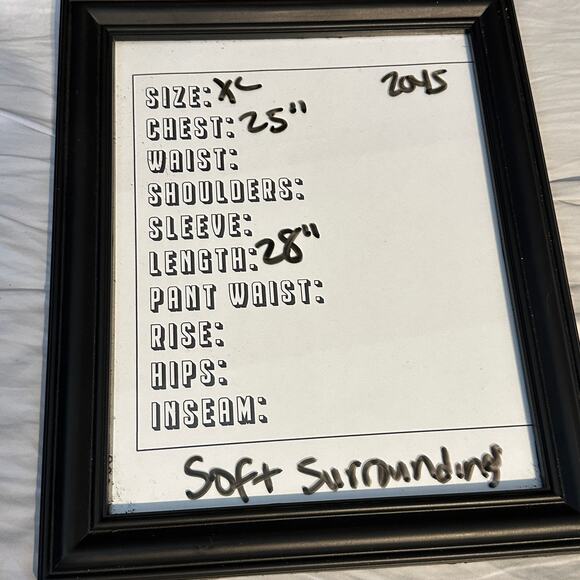 SIZE: XL 2045
CHEST: 25"
WAIST:
SHOULDERS:
SLEEVE:
LENGTH: 28"
PANT WAIST:
RISE:
HIPS:
INSEAM:
Soft Surroundings